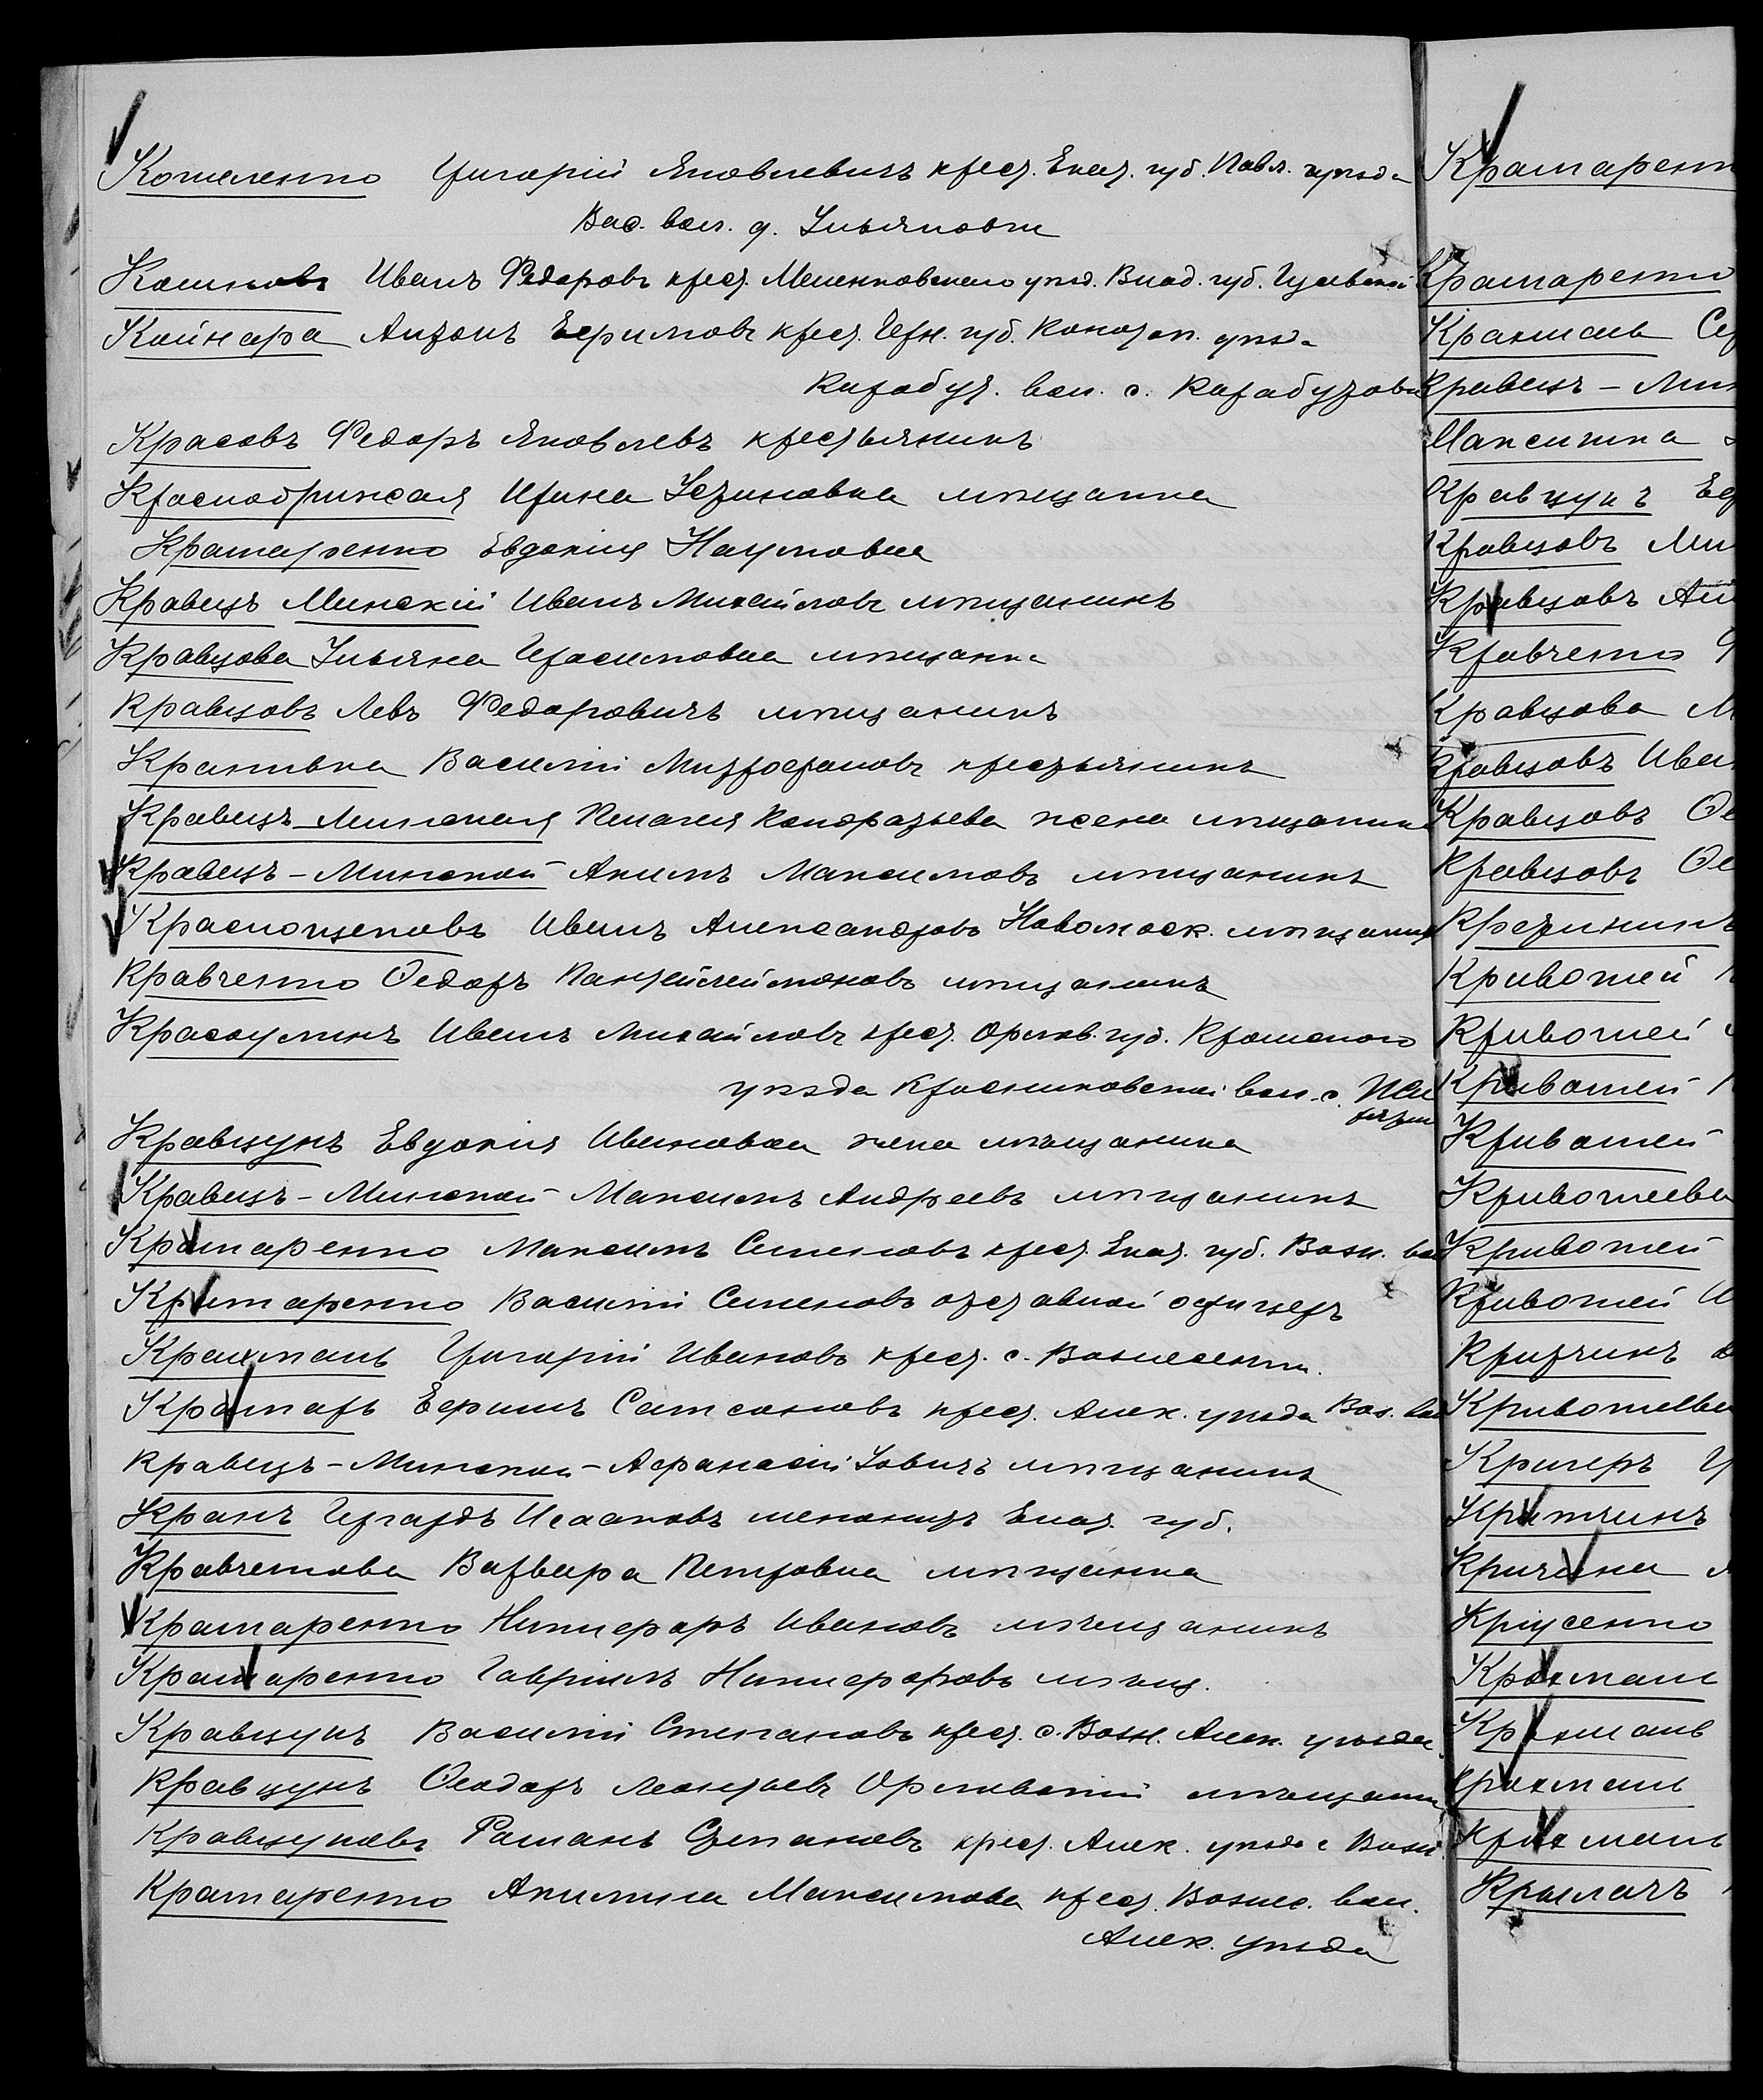 Кошеленко Григорій Яковлевичъ крест. Екат. губ. Павл. уѣзда
Вас. вол. д. Ульяновки
Кошковъ Иванъ Федоровъ крест. Меленковскаго уѣзд. Влад. губ.
Койнара Антонъ Ефимовъ крест. Черн. губ. Конотоп. уѣзда
вол. с.
Красовъ Федоръ Яковлевъ крестьянинъ
Ирина Устиновна мѣщанка
Крамаренко Евдокія Наумовна
Кравецъ Минскій Иванъ Михайловъ мѣщанинъ
Кравцова Ульяна Герасимовна мѣщанка
Кравцовъ Левъ Федоровичъ мѣщанинъ
Кракивка Василій Митрофановъ крестьянинъ
Кравецъ-Минская Пелагія Кондратьева жена мѣщанина
Кравецъ-Минской Акимъ Максимовъ мѣщанинъ
Краснощековъ Иванъ Александровъ Новомоск. мѣщанинъ
Кравченко Ѳедоръ Пантейлеймоновъ мѣщанинъ
Красулинъ Иванъ Михайловъ крест. Орлов. губ. Кромского
уѣзда Красниковской вол. с.
Кравцунъ Евдокія Ивановна жена мѣщанина
Кравецъ-Минской Максимъ Андреевъ мѣщанинъ
Крамаренко Максимъ Семеновъ крест. Екат. губ. Возн. вол
Крамаренко Василій Семеновъ отставной офицеръ
Крахмаль Григорій Ивановъ крест. с. Вознесенки.
Крамарь Ефимъ Самсоновъ крест. Алек. уѣзда Воз. вол
Кравецъ-Минской Афанасій Іовичъ мѣщанинъ
Кранъ Гергардъ Исааковъ менонитъ Екат. губ.
Кравченкова Варвара Петровна мѣщанка
Крамаренко Никифоръ Ивановъ мѣщанинъ
Крамаренко Гавріилъ Никифоровъ мѣщ.
Кравцунъ Василій Степановъ крест. с. Возн. Алек. уѣзда
Кравцунъ Ѳеодоръ Леонтьевъ Орловскій мѣщанин
Кравцуновъ Романъ Степановъ крест. Алек. уѣзда с Возн.
Крамаренко Акилина Максимова крест. Вознес. вол.
Алек. уѣзда
Крамаренк
Крамаренко
Крахмаль Се
Кравецъ-Мин
Максимка
Кравцунъ Еф
Кравцовъ Ми
Кравцовъ Ан
Кравченко
Кравцова М
Кравцовъ Иван
Кравцовъ Ѳе
Кравцовъ Ѳе
Кретининъ
Кривошей
Кривошей
Кривошей
Кривошей
Кривошеева
Кривошей
Кривошей И
Кривошеева
Кригеръ
Кричкинъ
Кричкина
Кріусенко
Крахмаль
Крахмаль
Крахмаль
Крахмаль
Крыгачъ